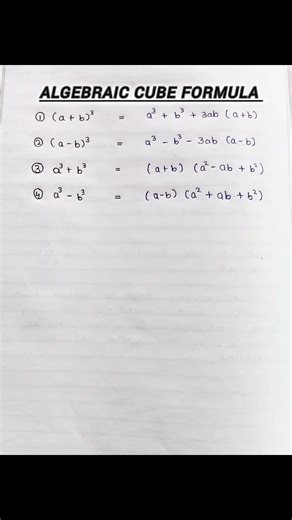 ALGEBRAIC CUBE FORMULA
① (a + b)³ = a³ + b³ + 3ab (a+b)
② (a - b)³ = a³ - b³ - 3ab (a-b)
③ a³ + b³ = (a+b) (a² - ab + b²)
④ a³ - b³ = (a-b) (a² + ab + b²)